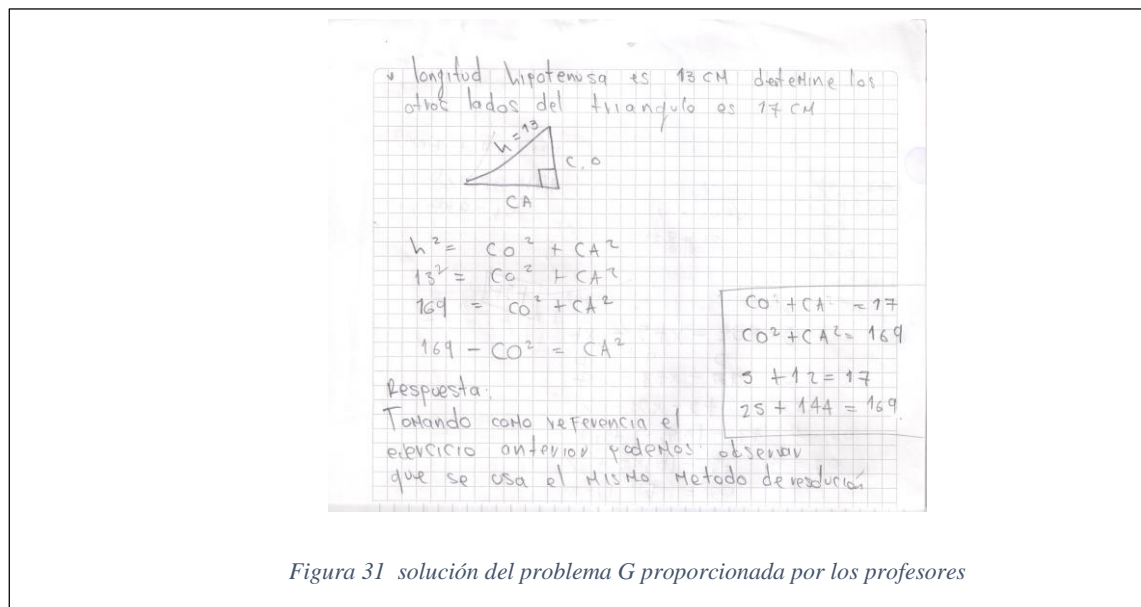 longitud hipotenusa es 13 CM determine los
otros lados del triangulo es 17 CM
h = 13
C.O
CA
h² = CO² + CA²
13² = CO² + CA²
169 = CO² + CA²
169 - CO² = CA²
CO + CA = 17
CO² + CA² = 169
5 + 12 = 17
25 + 144 = 169
Respuesta:
Tomando como referencia el
ejercicio anterior podemos observar
que se usa el mismo metodo de resolución
Figura 31 solución del problema G proporcionada por los profesores